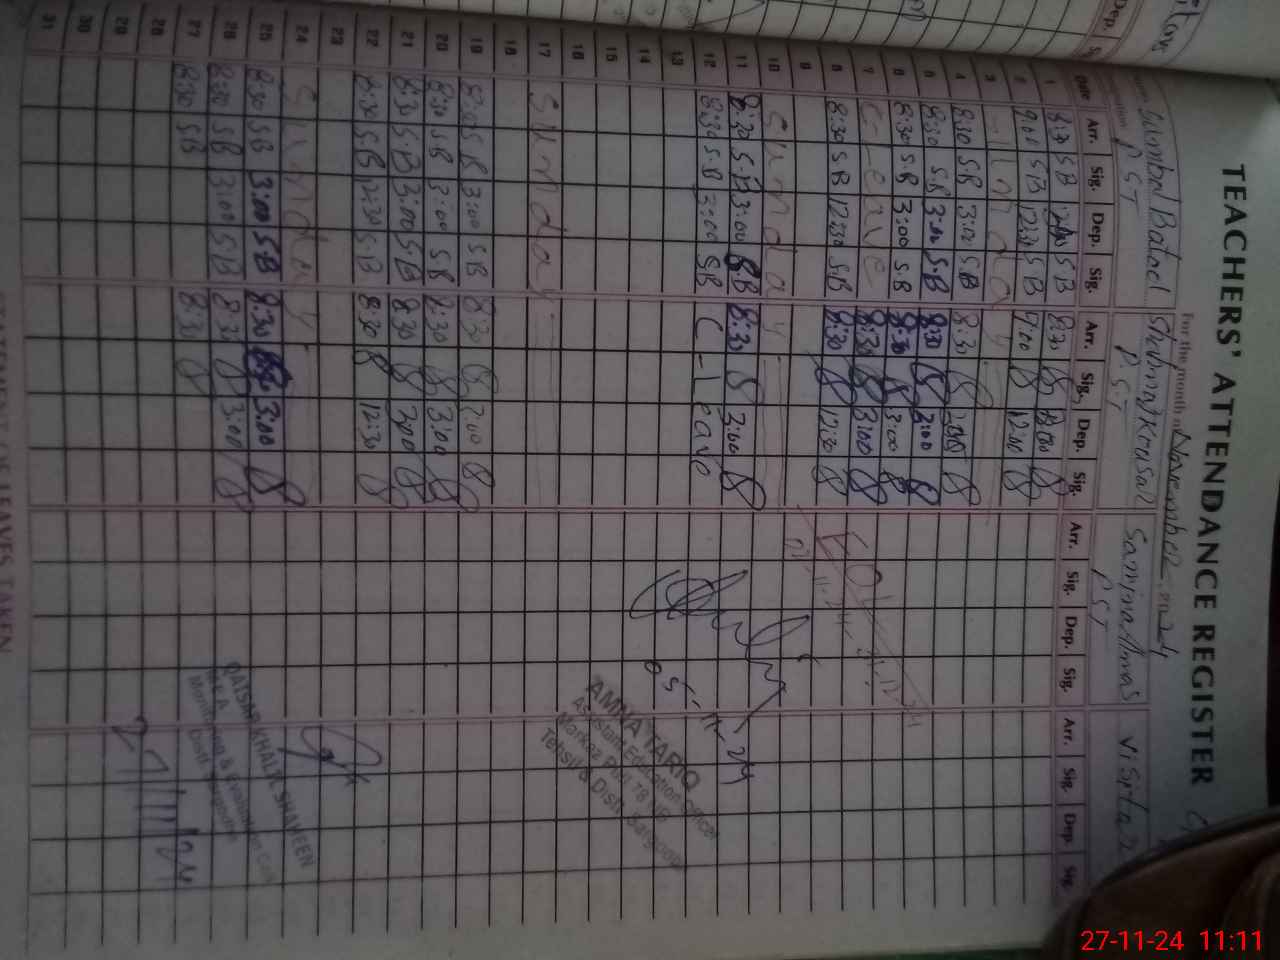 TEACHERS' ATTENDANCE REGISTER
For the month of November 2024
Batool P.S.T
P.S.T
Samina Almas P S T
Date Arr. Sig. Dep. Sig. Arr. Sig. Dep. Sig. Arr. Sig. Dep. Sig. Arr. Sig. Dep. Sig.
1 8:30 S B S.B 8:30
2 9:00 S B 12:30 S.B 9:00 12:00
3 Sunday
4 8:30 S.B 3:00 S.B 8:30
5 8:30 S.B 3:00 S.B 8:30 3:00
6 8:30 S.B 3:00 S.B 8:30 3:00
7 C-Leave 8:30 3:00
8 8:30 S.B 12:30 S.B 8:30 12:30
9
10 Sunday
11 8:30 S.B 3:00 S.B 8:30 3:00
12 8:30 S.B 3:00 S.B C-Leave
13
14
15
16
17 Sunday
18
19 8:30 S.B 3:00 S.B 8:30 3:00
20 8:30 S.B 3:00 S.B 8:30 3:00
21 8:30 S.B 3:00 S.B 8:30 3:00
22 8:30 S.B 12:30 S.B 8:30 12:30
23
24 Sunday
25 8:30 S.B 3:00 S.B 8:30 3:00
26 8:30 S.B 3:00 S.B 8:30 3:00
27 8:30 S.B 8:30
28
29
30
31
05-11-24
AMNA TARIQ
Assistant Education Officer
Markaz Pull 78 NB
Tehsil & Distt. Sargodha
QAISAR KHALIL SHAHEEN
M.E.A
Monitoring & Evaluation Cell
Distt. Sargodha
27/11/24
STATEMENT OF LEAVES TAKEN
27-11-24 11:11